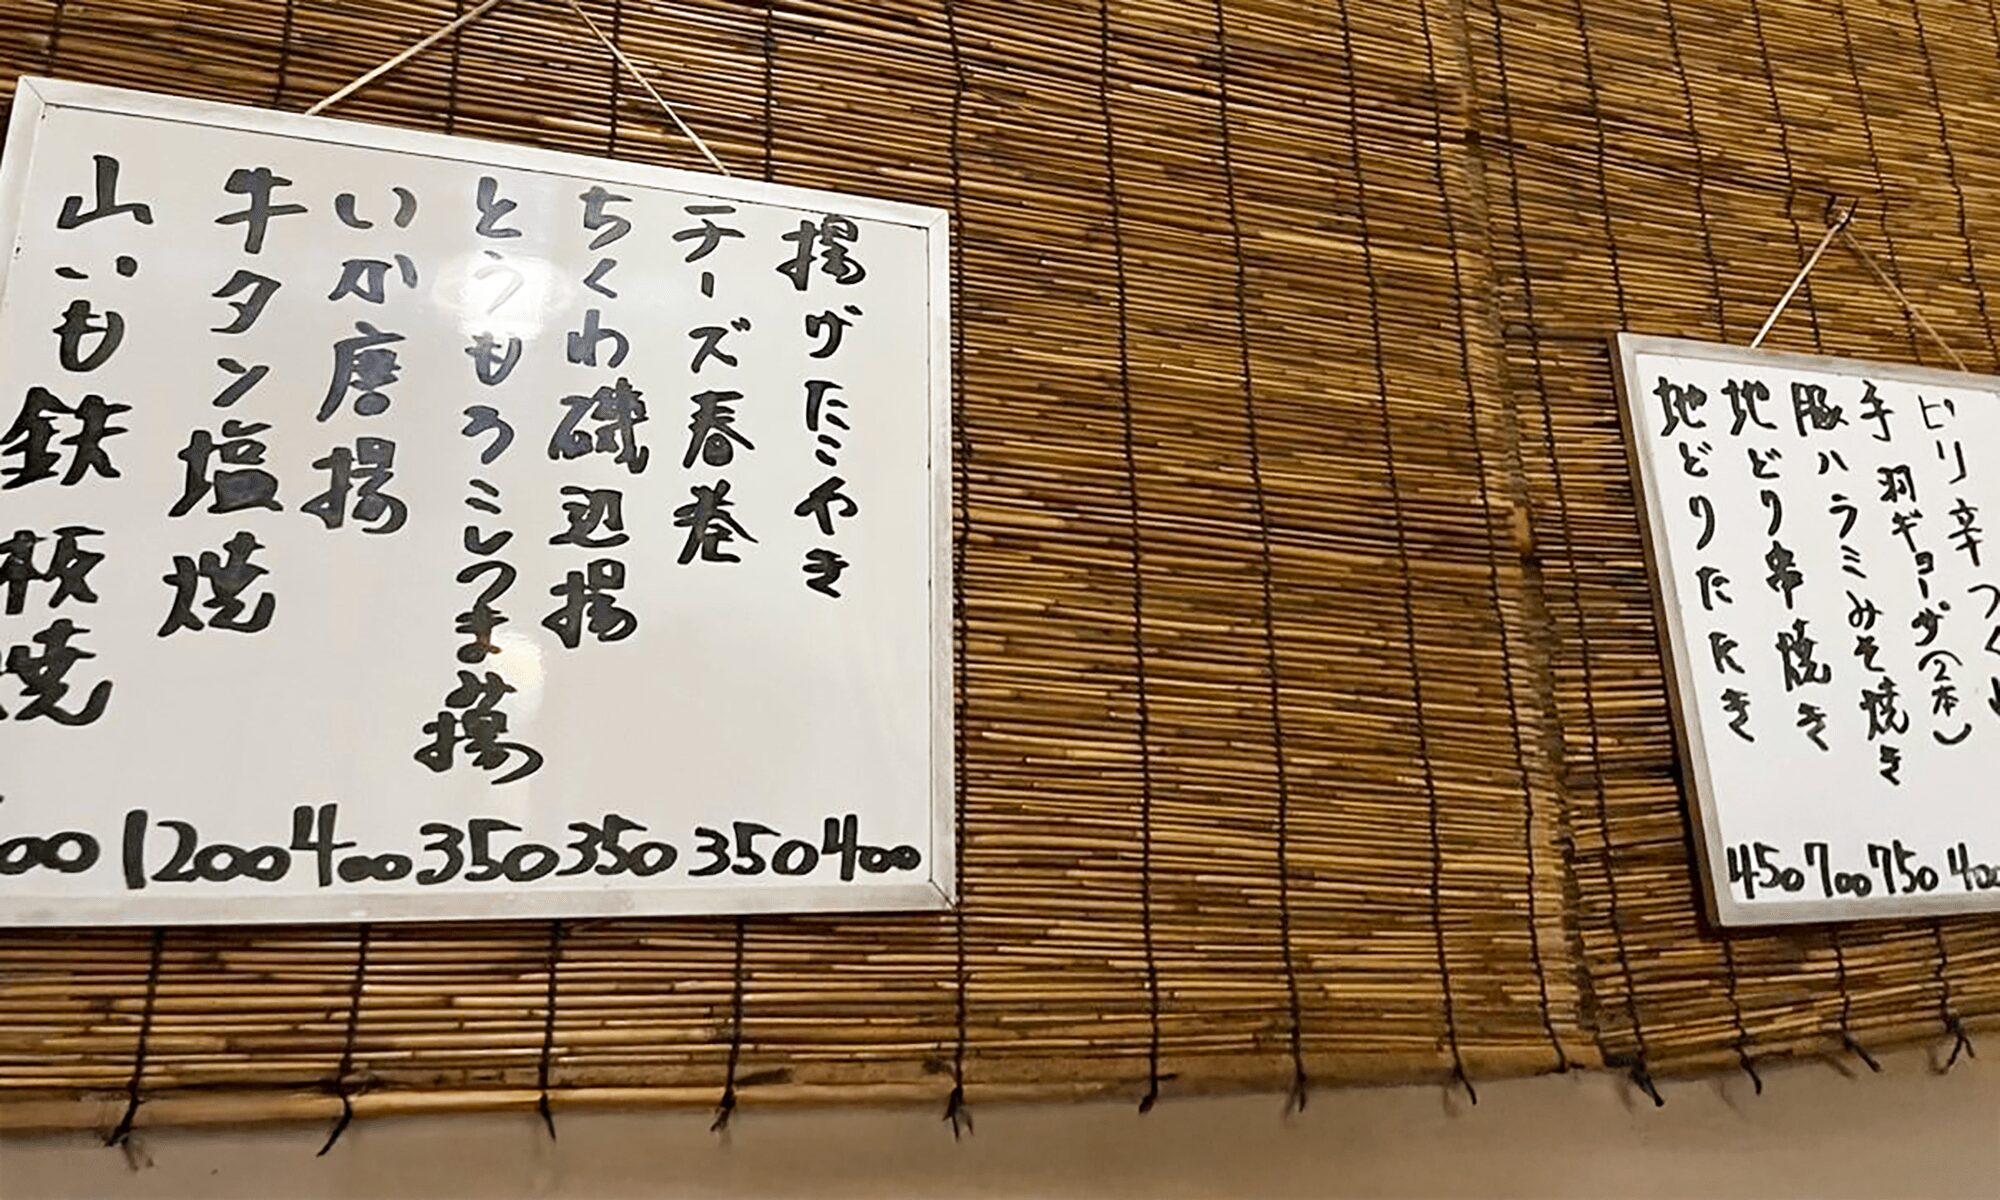 揚げたこやき 400
チーズ春巻 350
ちくわ磯辺揚 350
とうもろこしつま揚 350
いか唐揚 400
牛タン塩焼 1200
山いも鉄板焼 00
ピリ辛つく
手羽ギョーザ(2本) 400
豚ハラミみそ焼き 750
地どり串焼き 700
地どりたたき 450